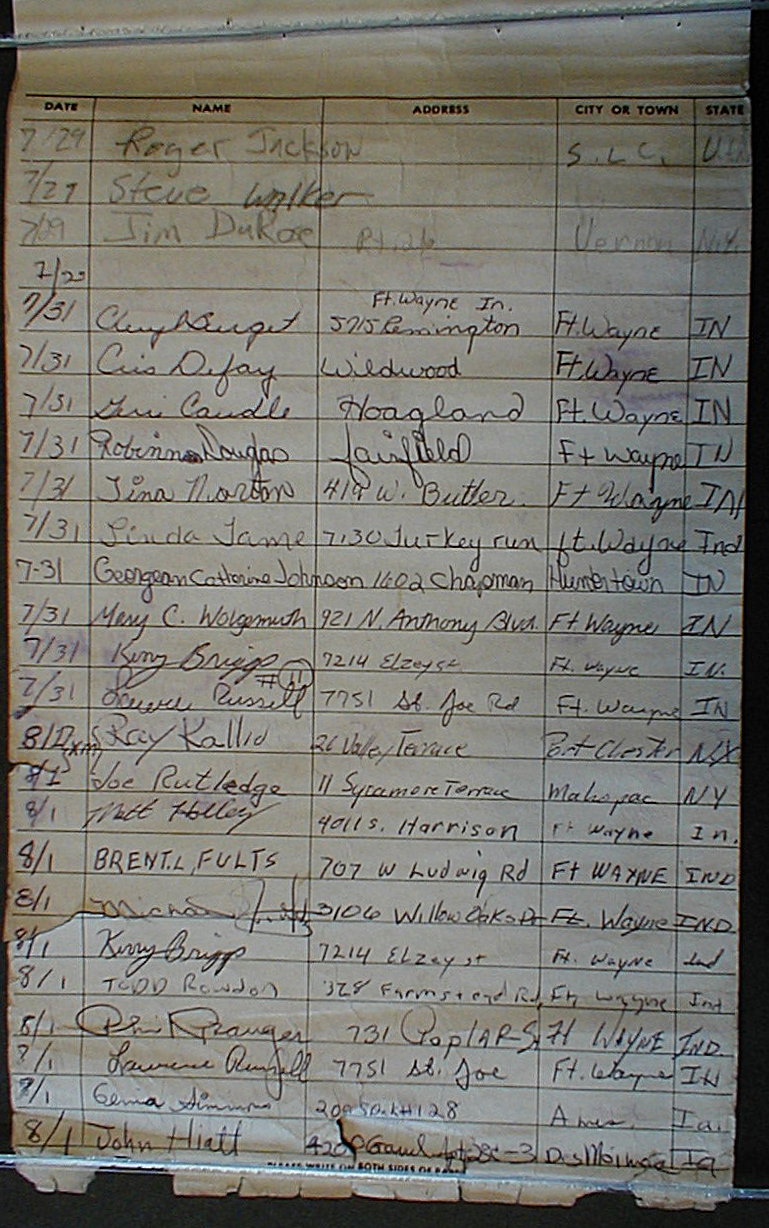 DATE NAME ADDRESS CITY OR TOWN STATE
7/29 Roger Jackson S.L.C.
7/29 Steve Walker
7/29 Jim DuRose Rt. 26 Vernon N.Y.
7/29
Ft. Wayne In.
7/31 5715 Remington Ft. Wayne IN
7/31 Cris Defay Wildwood Ft. Wayne IN
7/31 Geri Caudle Hoagland Ft. Wayne IN
7/31 Robinn Douglas fairfield Ft Wayne IN
7/31 Tina Norton 419 W. Butler Ft Wayne IN
7/31 Linda Jame 7130 Turkey run ft. Wayne Ind
7-31 Georgean Catherine Johnson 1602 Chapman IN
7/31 Mary C. Wolgemuth 921 N. Anthony Blvd. Ft Wayne IN
7/31 Kerry Briggs 7214 Elzey st Ft. Wayne IN.
#11
7/31 Lawrence Russell 7751 St. Joe Rd Ft. Wayne IN
8/1 Ray Kallid 26 Valley Terrace Port Chester NY
8/1 Joe Rutledge 11 Sycamore Terrace Mahopac NY
8/1 Matt Holley 4011 S. Harrison Ft Wayne In.
8/1 BRENT L. FULTS 707 W Ludwig Rd Ft WAYNE IND
8/1 3106 Willow Oaks Dr Ft. Wayne IND.
8/1 Kerry Briggs 7214 Elzey st Ft. Wayne Ind
8/1 TODD Rowdon 328 Farmstead Rd. Ft Wayne Ind
8/1 Phil Pranger 731 PoplAR St Ft WAYNE IND.
8/1 Lawrence Russell 7751 St. Joe Ft. Wayne IN
8/1 Simmons Ames. Ia.
8/1 John Hiatt DesMoines Ia
PLEASE WRITE ON BOTH SIDES OF